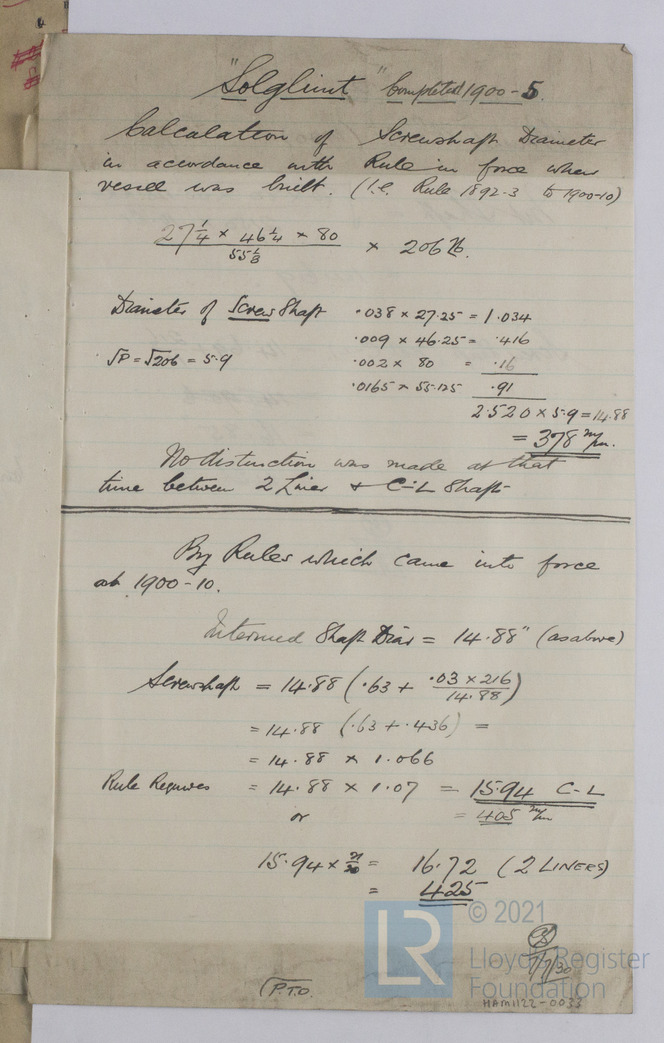 "Solglimt" Completed 1900-5.
Calculation of Screwshaft Diameter
in accordance with Rule in force when
vessel was built. (I.e. Rule 1892-3 to 1900-10)
27¼ × 46¼ × 80
55⅛
× 206 lb.
Diameter of Screw Shaft
√P = √206 = 5.9
.038 × 27.25 = 1.034
.009 × 46.25 = .416
.002 × 80 = .16
.0165 × 55.125 .91
2.520 × 5.9 = 14.88
= 378 m/m.
No distinction was made at that
time between 2 Liner & C-L Shafts
By Rules which came into force
at 1900-10.
Intermed Shaft Diar = 14.88" (as above)
Screwshaft = 14.88 (.63 + .03 × 216 / 14.88)
= 14.88 (.63 + .436) =
= 14.88 × 1.066
Rule Requires = 14.88 × 1.07 = 15.94 C-L
or = 405 m/m
15.94 × 21/20 = 16.72 (2 LINERS)
= 425
7/7/30
P.T.O.
HAM1122-0033
© 2021
LR
Lloyd's Register
Foundation